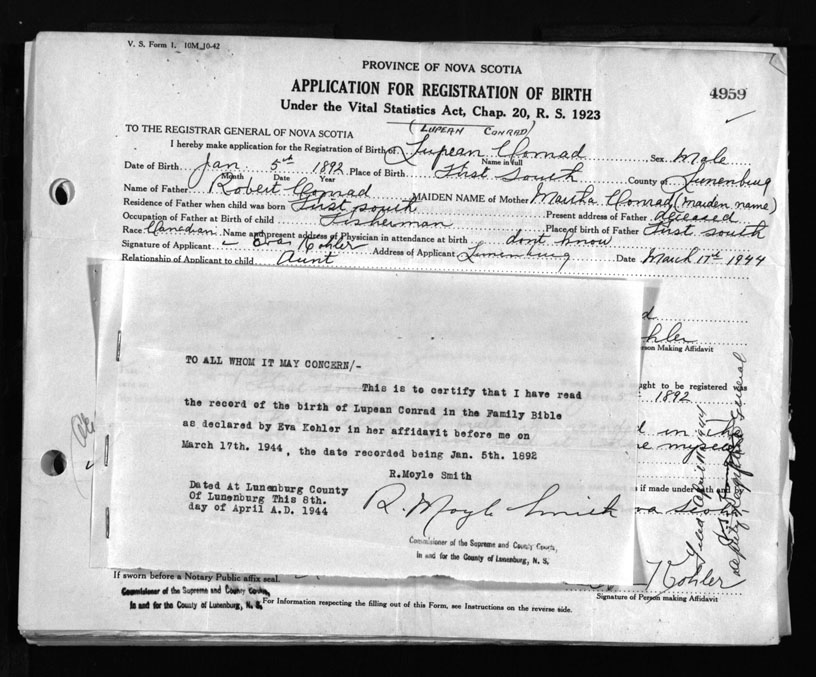 V. S. Form 1. 10M 10-42
PROVINCE OF NOVA SCOTIA
APPLICATION FOR REGISTRATION OF BIRTH
4959
Under the Vital Statistics Act, Chap. 20, R. S. 1923
(LUPEAN CONRAD)
TO THE REGISTRAR GENERAL OF NOVA SCOTIA
I hereby make application for the Registration of Birth of Lupean Conrad Sex Male
Name in full
Date of Birth Jan. 5th 1892 Place of Birth First South County of Lunenburg
Month Date Year
Name of Father Robert Conrad MAIDEN NAME of Mother Martha Conrad (maiden name)
Residence of Father when child was born First South Present address of Father deceased
Occupation of Father at Birth of child Fisherman Place of birth of Father First South
Race Canadian Name and present address of Physician in attendance at birth dont know
Signature of Applicant Eva Kohler Address of Applicant Lunenburg Date March 17th 1944
Relationship of Applicant to child Aunt
hler
rson Making Affidavit
ught to be registered was
1892
TO ALL WHOM IT MAY CONCERN/-
This is to certify that I have read
the record of the birth of Lupean Conrad in the Family Bible
as declared by Eva Kohler in her affidavit before me on
March 17th. 1944, the date recorded being Jan. 5th. 1892
R.Moyle Smith
Dated At Lunenburg County
Of Lunenburg This 8th.
day of April A.D. 1944
R. Moyle Smith
Commissioner of the Supreme and County Courts,
In and for the County of Lunenburg, N. S.
in the
e myself
as if made under oath and
va Scotia
Deputy Registrar General
Kohler
Signature of Person making Affidavit
If sworn before a Notary Public affix seal.
Commissioner of the Supreme and County Courts,
In and for the County of Lunenburg, N. S.
For Information respecting the filling out of this Form, see Instructions on the reverse side.